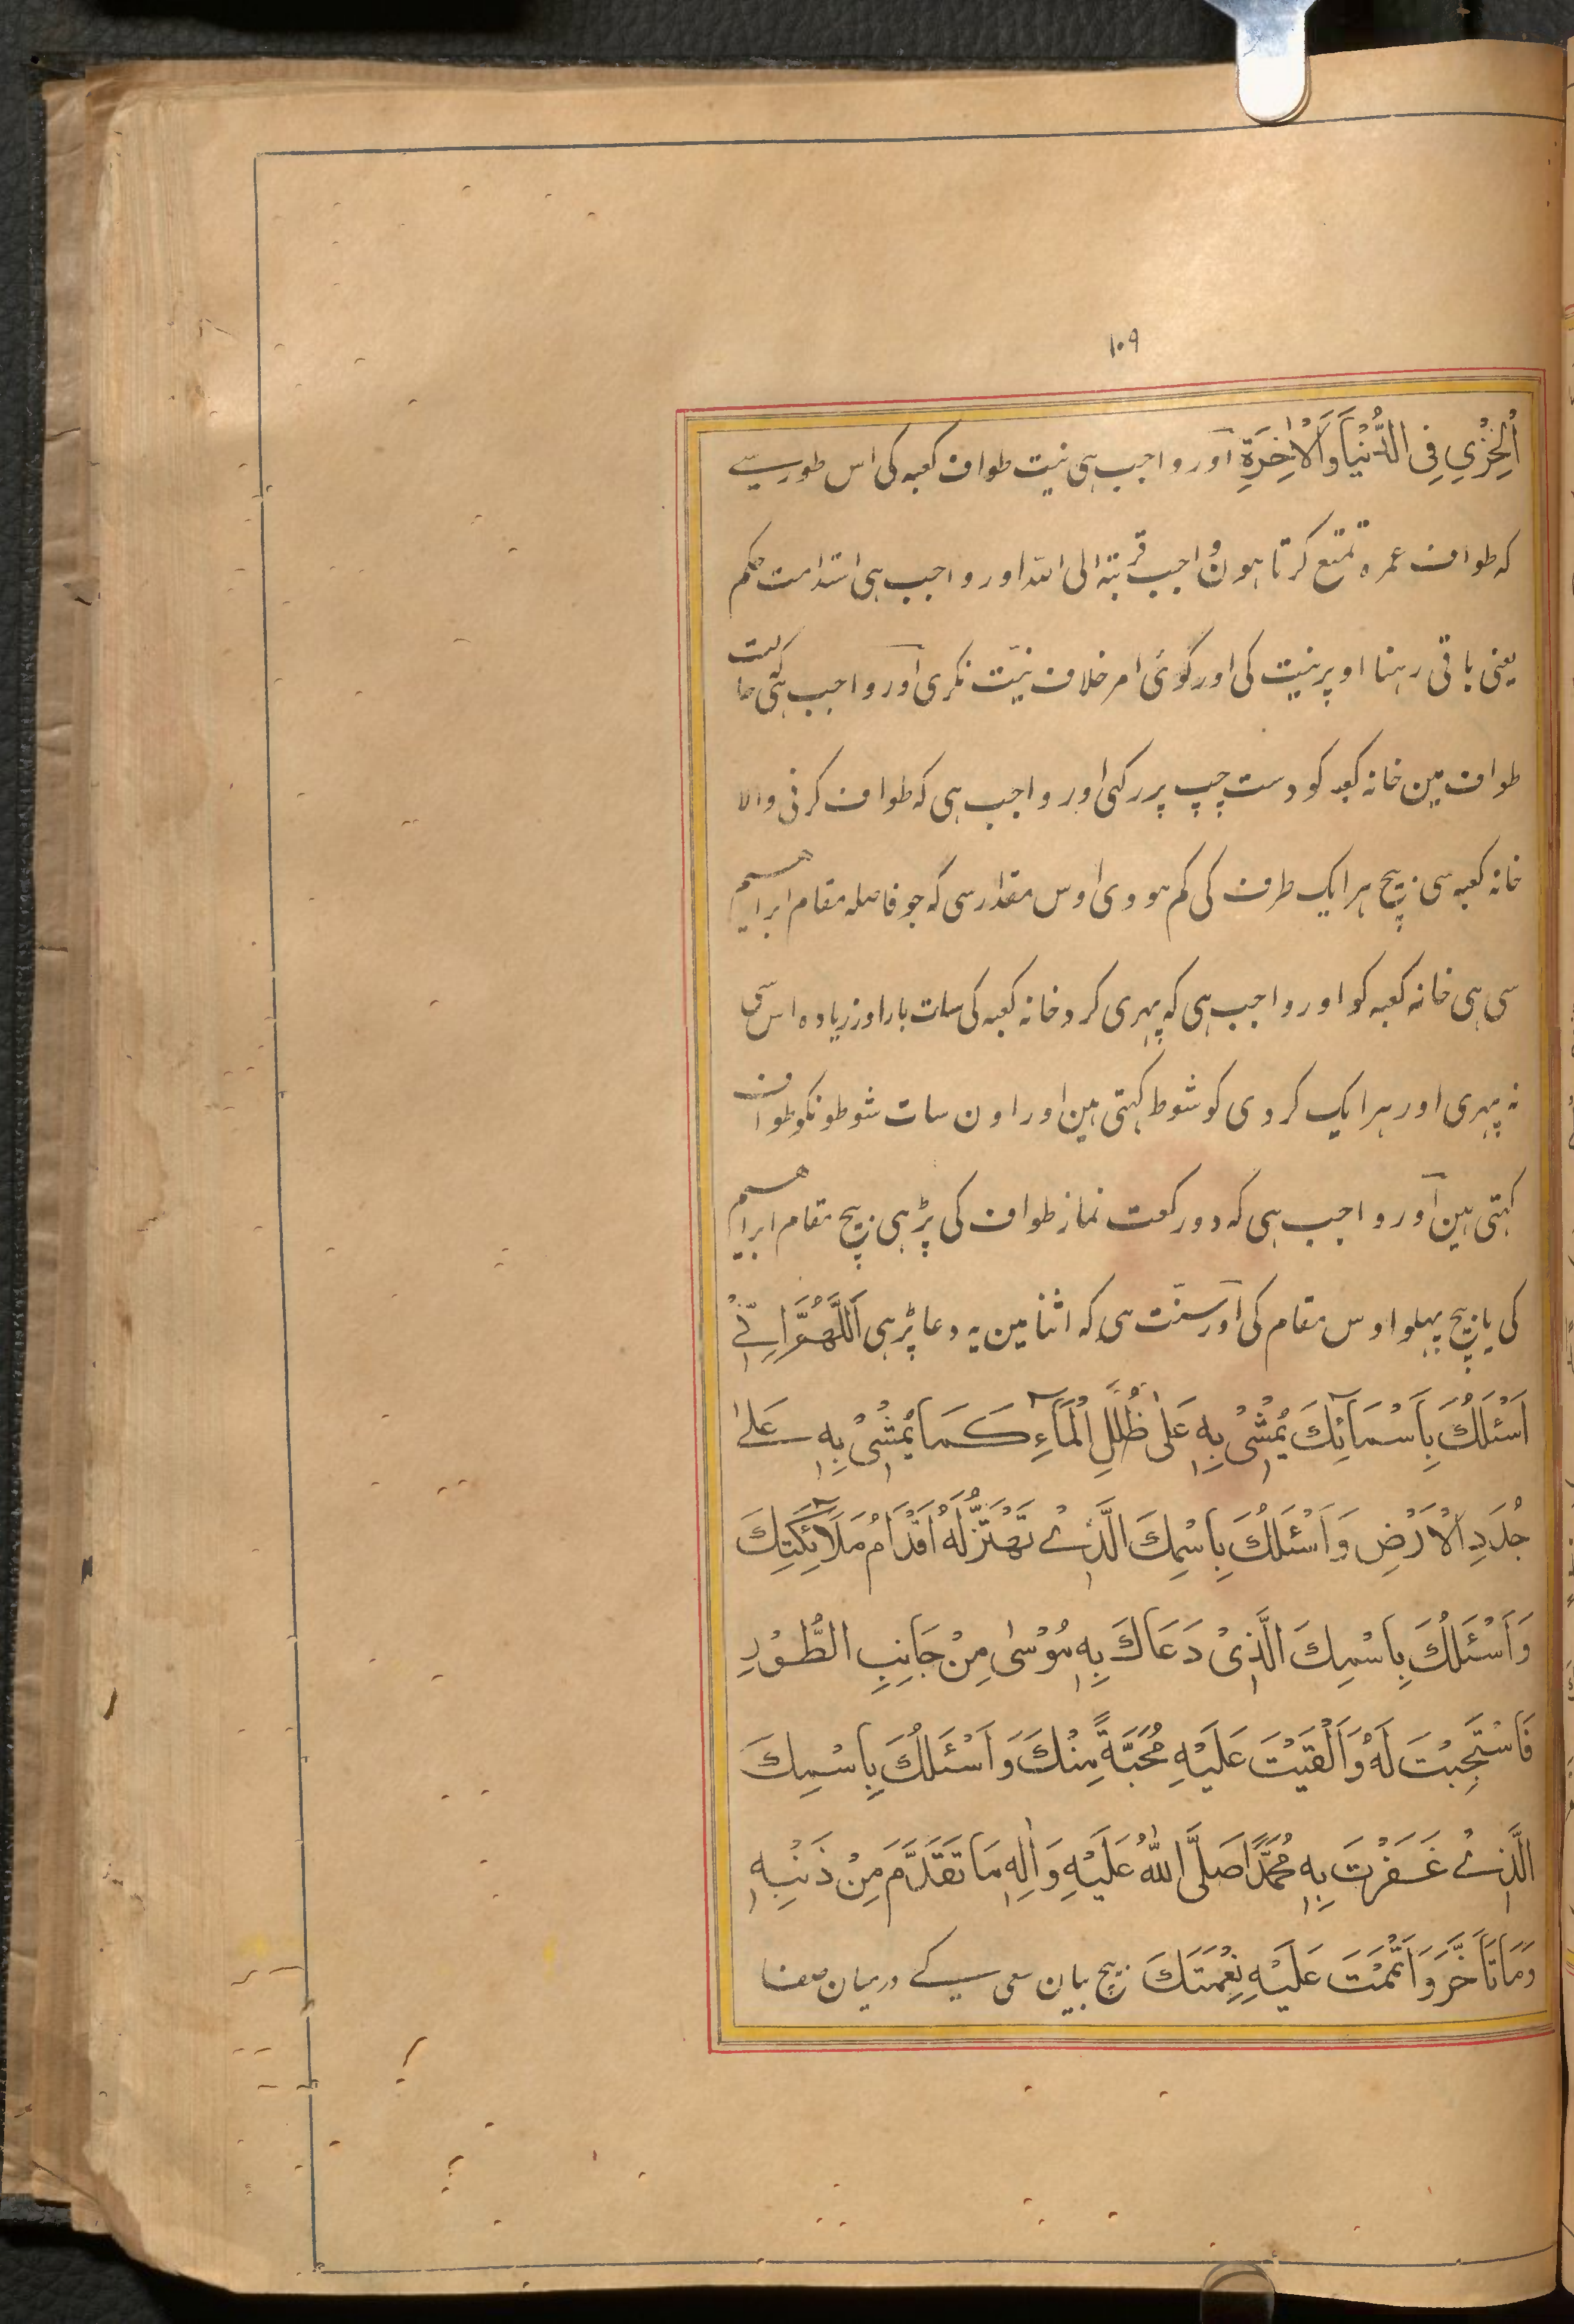 ۱۰۹
اَلْخِزْيِ فِي الدُّنْيَا وَالْاٰخِرَةِ اور واجب ہی نیت طواف کعبہ کی اس طور سے
کہ طواف عمرہ تمتع کرتا ہون واجب قربتہ الی اللہ اور واجب ہی استدامت حکم
یعنی باقی رہنا اوپر نیت کی اور کوئی امر خلاف نیّت نکری اور واجب ہی کہ حالت
طواف مین خانہ کعبہ کو دست چپ پر رکہی اور واجب ہی کہ طواف کرنی والا
خانہ کعبہ سی بیچ ہر ایک طرف کی کم ہووی اوس مقدار سی کہ جو فاصلہ مقام ابراہیم
سی ہی خانہ کعبہ کو اور واجب ہی کہ پہری کرد خانہ کعبہ کی سات بار اور زیادہ اس سی
نہ پہری اور ہر ایک کردی کو شوط کہتی ہین اور اون سات شوطونکو طواف
کہتی ہین اور واجب ہی کہ دو رکعت نماز طواف کی پڑہی بیچ مقام ابراہیم
کی یا بیچ پہلو اوس مقام کی اور سنّت ہی کہ اثنا مین یہ دعا پڑہی اَللّٰهُمَّ اِنِّیْ
اَسْئَلُكَ بِاَسْمَآئِكَ يُمْشٰیْ بِهٖ عَلٰی ظُلَلِ الْمَآءِ كَمَا يُمْشٰیْ بِهٖ عَلٰی
جُدَدِ الْاَرْضِ وَاَسْئَلُكَ بِاسْمِكَ الَّذِیْ تَهْتَزُّ لَهُ اَقْدَامُ مَلَآئِكَتِكَ
وَاَسْئَلُكَ بِاسْمِكَ الَّذِیْ دَعَاكَ بِهٖ مُوْسٰی مِنْ جَانِبِ الطُّوْرِ
فَاسْتَجَبْتَ لَهُ وَاَلْقَيْتَ عَلَيْهِ مُحَبَّةً مِنْكَ وَاَسْئَلُكَ بِاسْمِكَ
الَّذِیْ غَفَرْتَ بِهٖ مُحَمَّدًا صَلَّی اللّٰهُ عَلَيْهِ وَاٰلِهٖ مَا تَقَدَّمَ مِنْ ذَنْبِهٖ
وَمَا تَاَخَّرَ وَاَتْمَمْتَ عَلَيْهِ نِعْمَتَكَ بیچ بیان سعی کے درمیان صفا